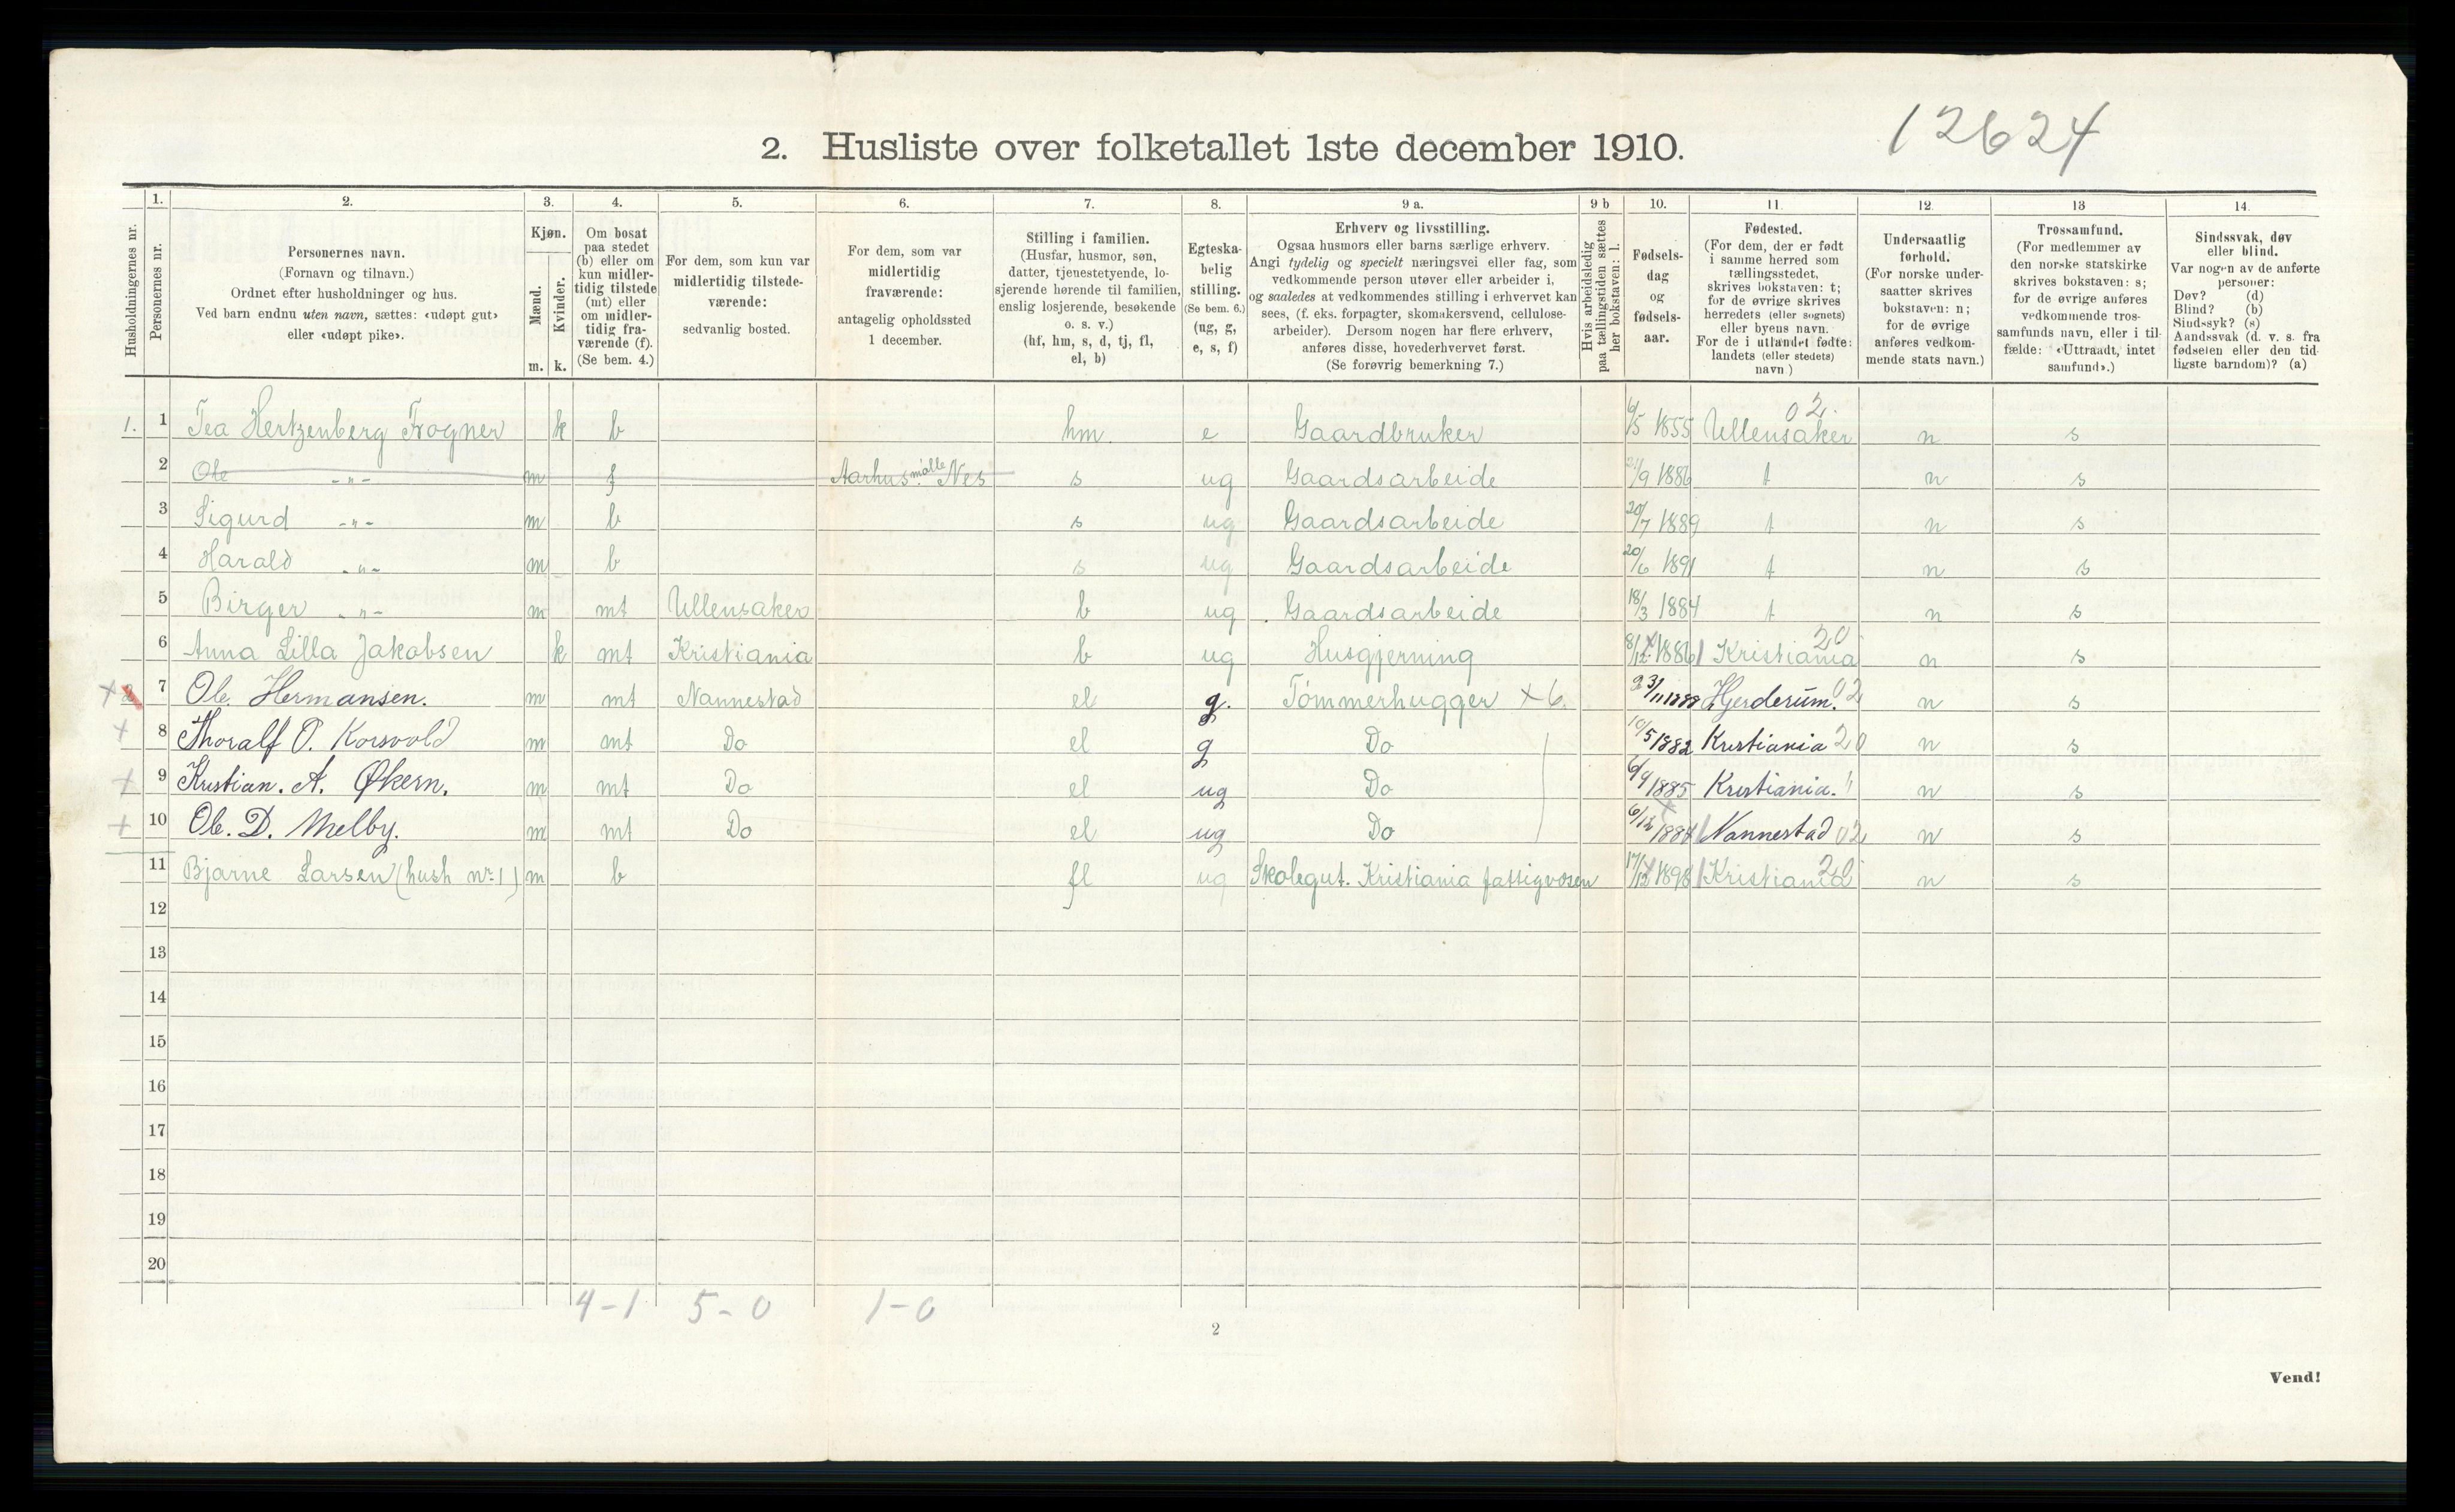 12624
2. Husliste over folketallet 1ste december 1910.
Husholdningernes nr.
1.
Personernes nr.
2.
Personernes navn.
(Fornavn og tilnavn.)
Ordnet efter husholdninger og hus.
Ved barn endnu uten navn, sættes: «udøpt gut»
eller «udøpt pike».
3.
Kjøn.
Mænd.
Kvinder.
m. k.
4.
Om bosat
paa stedet
(b) eller om
kun midler-
tidig tilstede
(mt) eller
om midler-
tidig fra-
værende (f).
(Se bem. 4.)
5.
For dem, som kun var
midlertidig tilstede-
værende:
sedvanlig bosted.
6.
For dem, som var
midlertidig
fraværende:
antagelig opholdssted
1 december.
7.
Stilling i familien.
(Husfar, husmor, søn,
datter, tjenestetyende, lo-
sjerende hørende til familien,
enslig losjerende, besøkende
o. s. v.)
(hf, hm, s, d, tj, fl,
el, b)
8.
Egteska-
belig
stilling.
(Se bem. 6.)
(ug, g,
e, s, f)
9 a.
Erhverv og livsstilling.
Ogsaa husmors eller barns særlige erhverv.
Angi tydelig og specielt næringsvei eller fag, som
vedkommende person utøver eller arbeider i,
og saaledes at vedkommendes stilling i erhvervet kan
sees, (f. eks. forpagter, skomakersvend, cellulose-
arbeider). Dersom nogen har flere erhverv,
anføres disse, hovederhvervet først.
(Se forøvrig bemerkning 7.)
9 b
Hvis arbeidsledig
paa tællingstiden sættes
her bokstaven: l.
10.
Fødsels-
dag
og
fødsels-
aar.
11.
Fødested.
(For dem, der er født
i samme herred som
tællingsstedet,
skrives bokstaven: t;
for de øvrige skrives
herredets (eller sognets)
eller byens navn.
For de i utlandet fødte:
landets (eller stedets)
navn)
12.
Undersaatlig
forhold.
(For norske under-
saatter skrives
bokstaven: n;
for de øvrige
anføres vedkom-
mende stats navn.)
13
Trossamfund.
(For medlemmer av
den norske statskirke
skrives bokstaven: s;
for de øvrige anføres
vedkommende tros-
samfunds navn, eller i til-
fælde: «Uttraadt, intet
samfund».)
14.
Sindssvak, døv
eller blind.
Var nogen av de anførte
personer:
Døv? (d)
Blind? (b)
Sindssyk? (s)
Aandssvak (d. v. s. fra
fødselen eller den tid-
ligste barndom)? (a)
1. 1 Tea Hertzenberg Frogner k b hm. e Gaardbruker 6/5 1855 Ullensaker 02. n s
2 Ole -"- m f Aarhus mølle Nes s ug Gaardsarbeide /9 1886 t n s
3 Sigurd -"- m b s ug Gaardsarbeide 20/7 1889 t n s
4 Harald -"- m b s ug Gaardsarbeide 20/6 1891 t n s
5 Birger -"- m mt Ullensaker b ug Gaardsarbeide 18/3 1884 t n s
6 Anna Lilla Jakobsen k mt Kristiania b ug Husgjerning 8/12 1886 Kristiania 20 n s
+ 7 Ole Hermansen. m mt Nannestad el g. Tømmerhugger +6. 23/11 1888 Hjerderum. 02 n s
+ 8 Thoralf O. Korsvold m mt Do el g Do 10/5 1882 Kristiania 20 n s
+ 9 Kristian. A. Økern. m mt Do el ug Do 6/9 1885 Kristiania. " n s
+ 10 Ole. D. Melby. m mt Do el ug Do 6/12 1884 Nannestad 02 n s
11 Bjarne Larsen (hush nr. 1) m b fl ug Skolegut. Kristiania fattigvæsen 17/12 1898 Kristiania 20 n s
12
13
14
15
16
17
18
19
20
4-1 5-0 1-0
2
Vend!